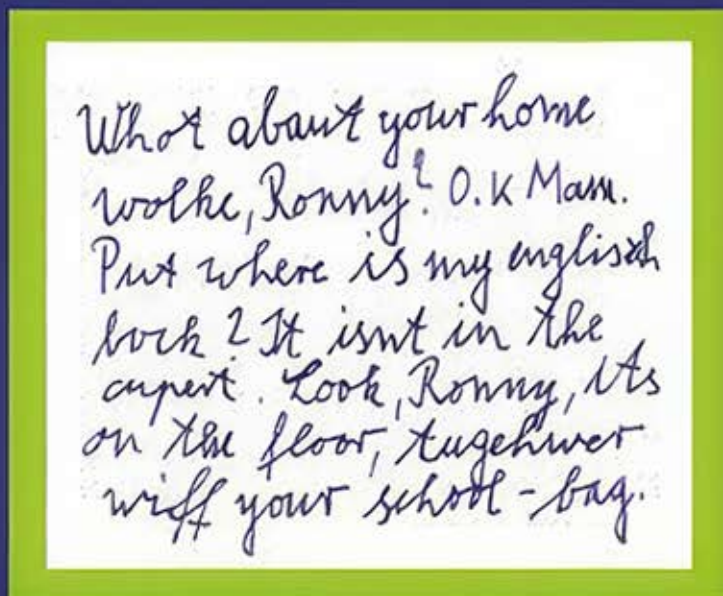 What abaut your home
wolke, Ronny? O.K Mam.
Put where is my englisch
bock? It isnt in the
cupert. Look, Ronny, its
on the floor, tugehwer
wiff your school-bag.